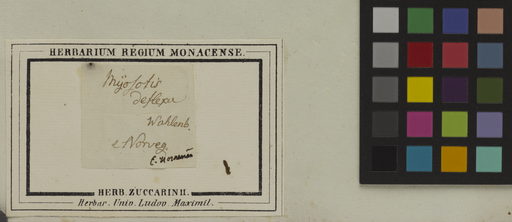 HERBARIUM REGIUM MONACENSE.
Myosotis
deflexa
Wahlenb.
e Norveg.
HERB. ZUCCARINII.
Herbar. Univ. Ludov. Maximil.